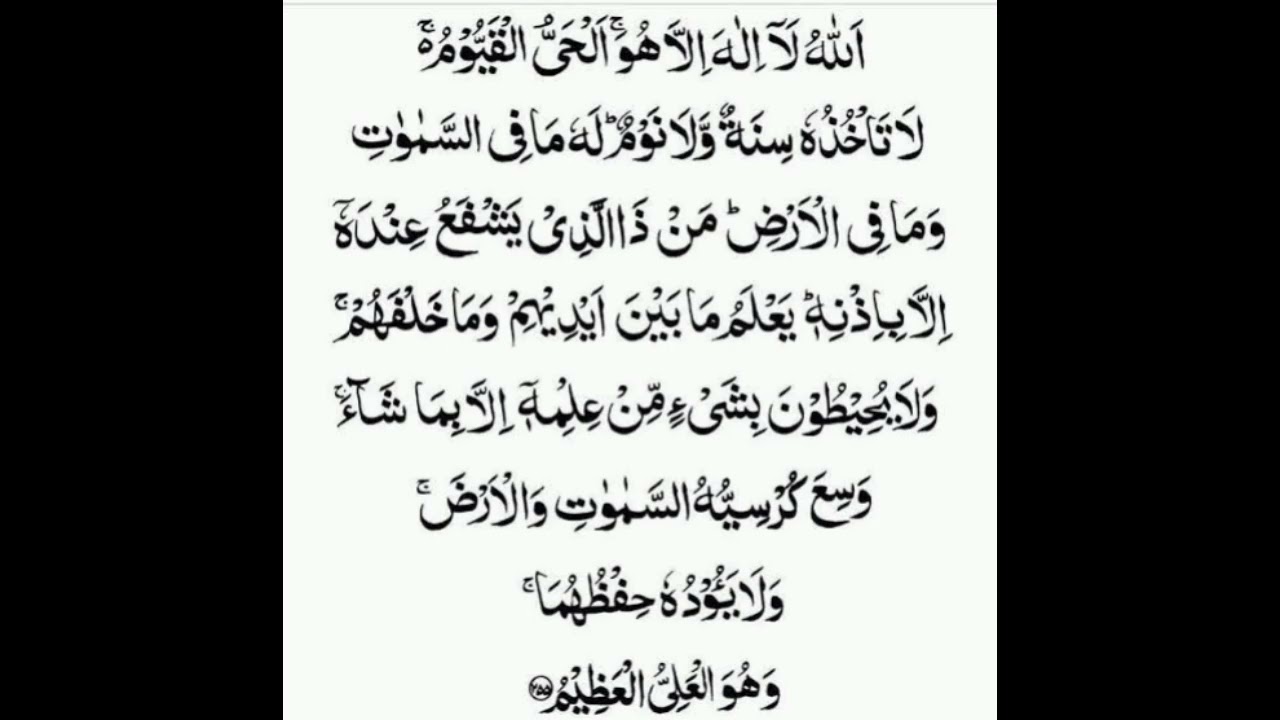 اَللّٰهُ لَاۤ اِلٰهَ اِلَّا هُوَۚ اَلْحَیُّ الْقَیُّوْمُ ۬ۚ
لَا تَاْخُذُهٗ سِنَةٌ وَّلَا نَوْمٌؕ لَهٗ مَا فِی السَّمٰوٰتِ
وَمَا فِی الْاَرْضِؕ مَنْ ذَا الَّذِیْ یَشْفَعُ عِنْدَهٗۤ
اِلَّا بِاِذْنِهٖؕ یَعْلَمُ مَا بَیْنَ اَیْدِیْهِمْ وَمَا خَلْفَهُمْۚ
وَلَا یُحِیْطُوْنَ بِشَیْءٍ مِّنْ عِلْمِهٖۤ اِلَّا بِمَا شَآءَۚ
وَسِعَ كُرْسِیُّهُ السَّمٰوٰتِ وَالْاَرْضَۚ
وَلَا یَـُٔوْدُهٗ حِفْظُهُمَاۚ
وَهُوَ الْعَلِیُّ الْعَظِیْمُ ۝۲۵۵